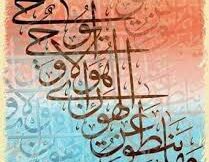 وما ينطق عن
الهوى إن
هو إلا و
حي يوحى